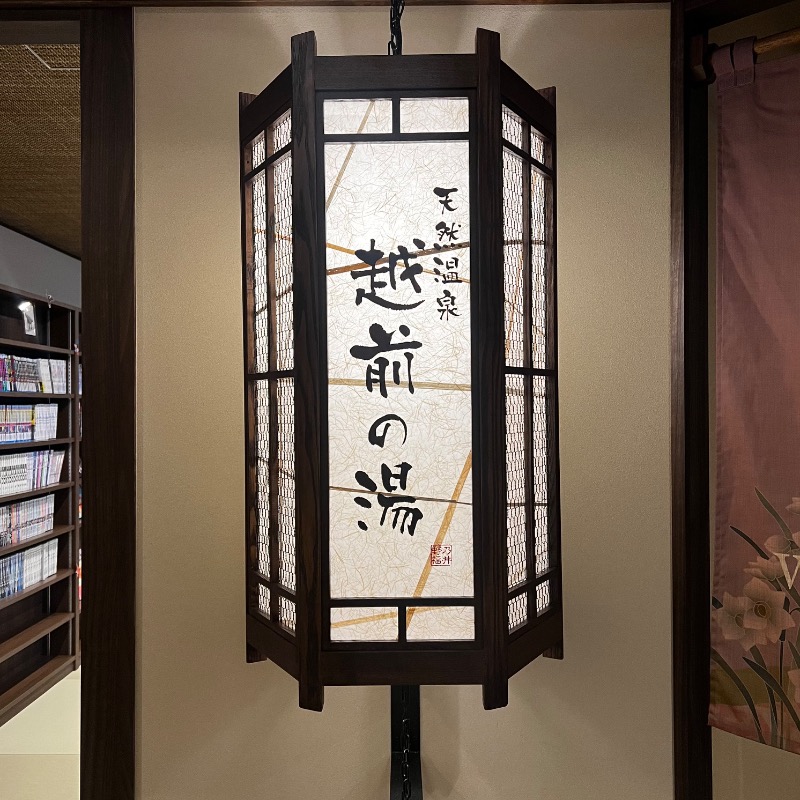 天然温泉
越前の湯